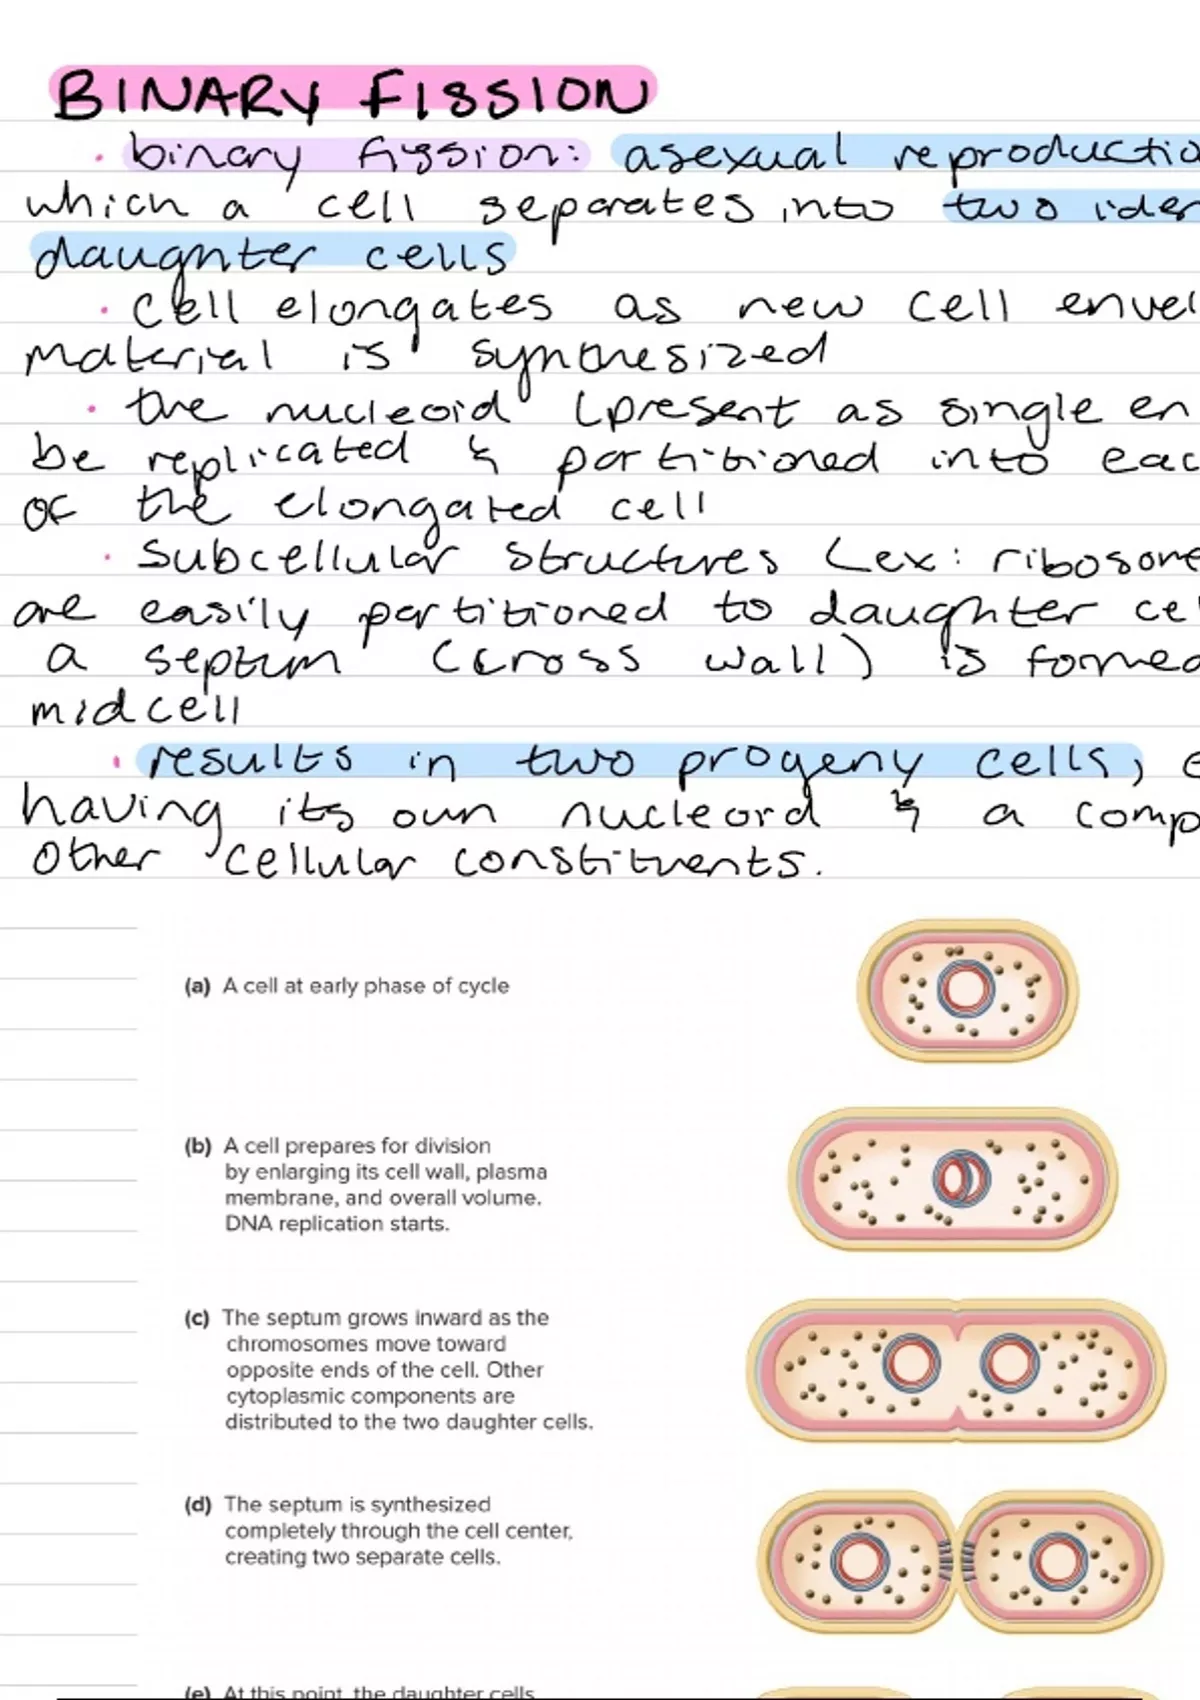 BINARY FISSION
· binary fission: asexual reproductio
which a cell separates into two iden
daughter cells
· cell elongates as new cell envel
material is synthesized
· the nucleoid (present as single en
be replicated & partitioned into eac
of the elongated cell
· subcellular structures (ex: ribosome
are easily partitioned to daughter ce
a septum (cross wall) is formed
midcell
· results in two progeny cells, e
having its own nucleoid & a comp
other cellular constituents.
(a) A cell at early phase of cycle
(b) A cell prepares for division
by enlarging its cell wall, plasma
membrane, and overall volume.
DNA replication starts.
(c) The septum grows inward as the
chromosomes move toward
opposite ends of the cell. Other
cytoplasmic components are
distributed to the two daughter cells.
(d) The septum is synthesized
completely through the cell center,
creating two separate cells.
(e) At this point, the daughter cells